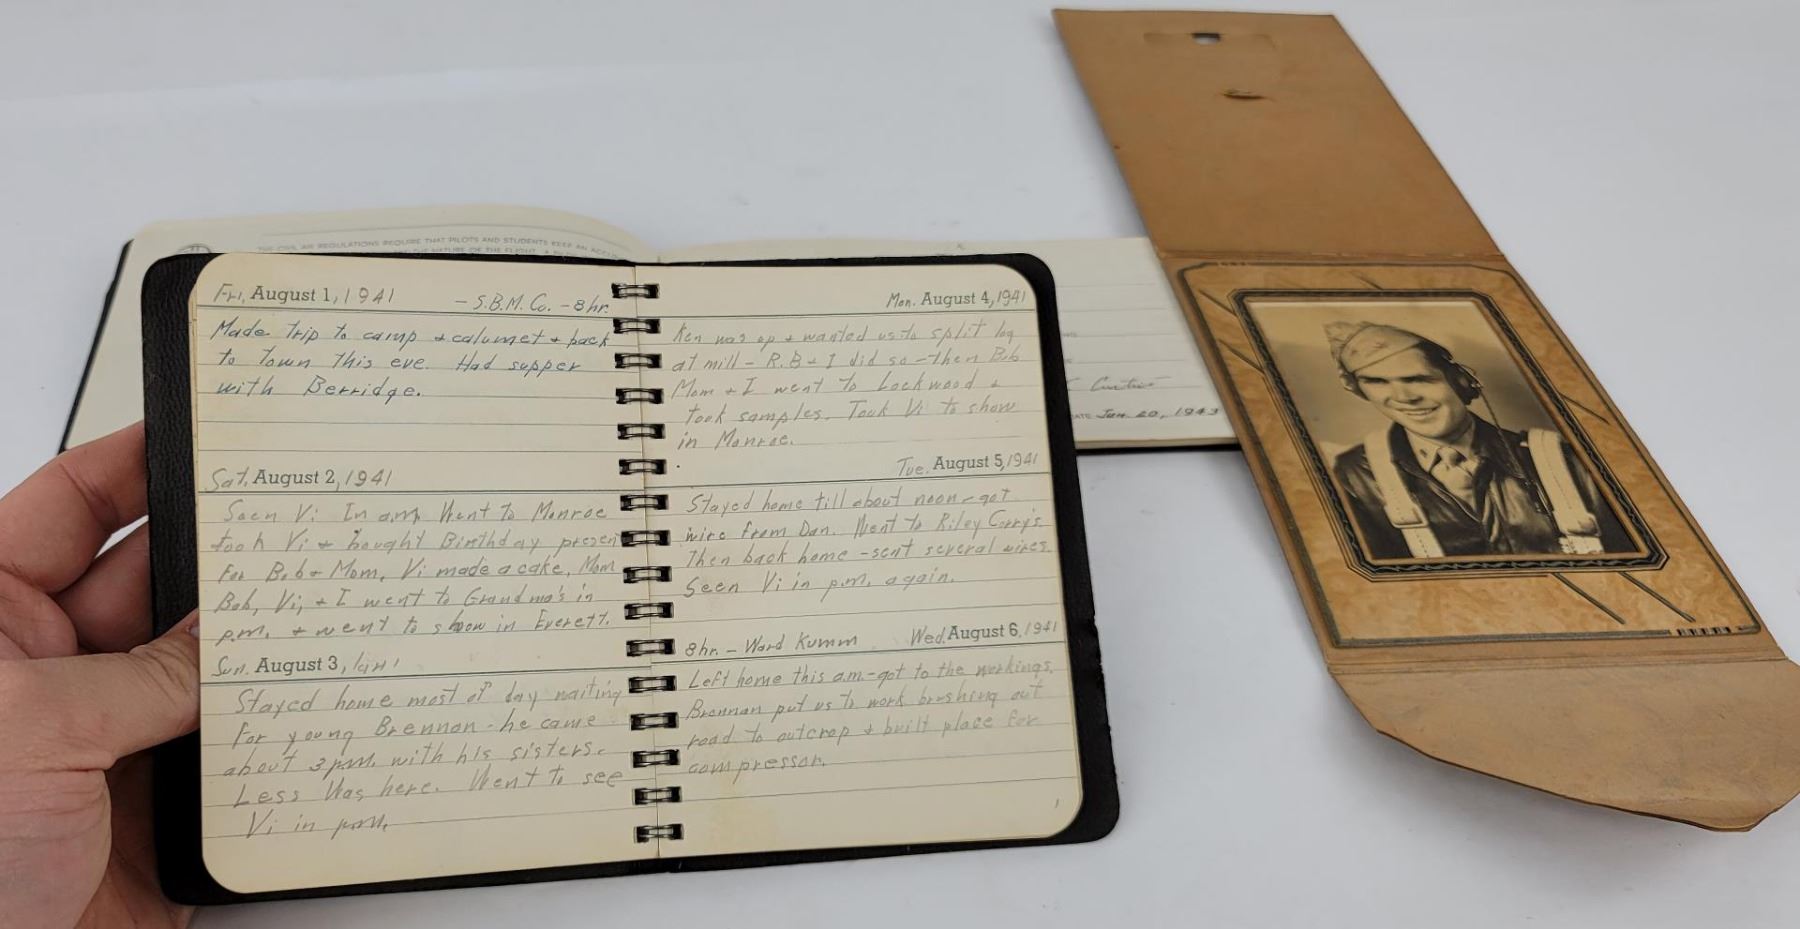 THE CIVIL AIR REGULATIONS REQUIRE THAT PILOTS AND STUDENTS KEEP AN
THE NATURE OF THE FLIGHT.
Fri, August 1, 1941
- S.B.M. Co. - 8 hr.
Made trip to camp + calumet + back
to town this eve. Had supper
with Berridge.
Sat. August 2, 1941
Seen Vi In a.m. Went to Monroe
took Vi + bought Birthday presen
for Bob + Mom. Vi made a cake, Mom
Bob, Vi, + I went to Grandma's in
p.m. + went to show in Everett.
Sun. August 3, 1941
Stayed home most of day waiting
for young Brennan - he came
about 3 p.m. with his sisters.
Less Was here. Went to see
Vi in p.m.
Mon. August 4, 1941
Ken was up + wanted us to split log
at mill - R.B + I did so - then Bob
Mom + I went to Lockwood +
took samples. Took Vi to show
in Monroe.
Tue. August 5, 1941
Stayed home till about noon - got
wire from Dan. Went to Riley
Then back home - sent several wires.
Seen Vi in p.m. again.
8hr. - Ward Kumm Wed. August 6, 1941
Left home this a.m. - got to the workings.
Brennan put us to work brushing out
road to outcrop + built place for
compressor.
Curtis
DATE Jan. 20, 1943